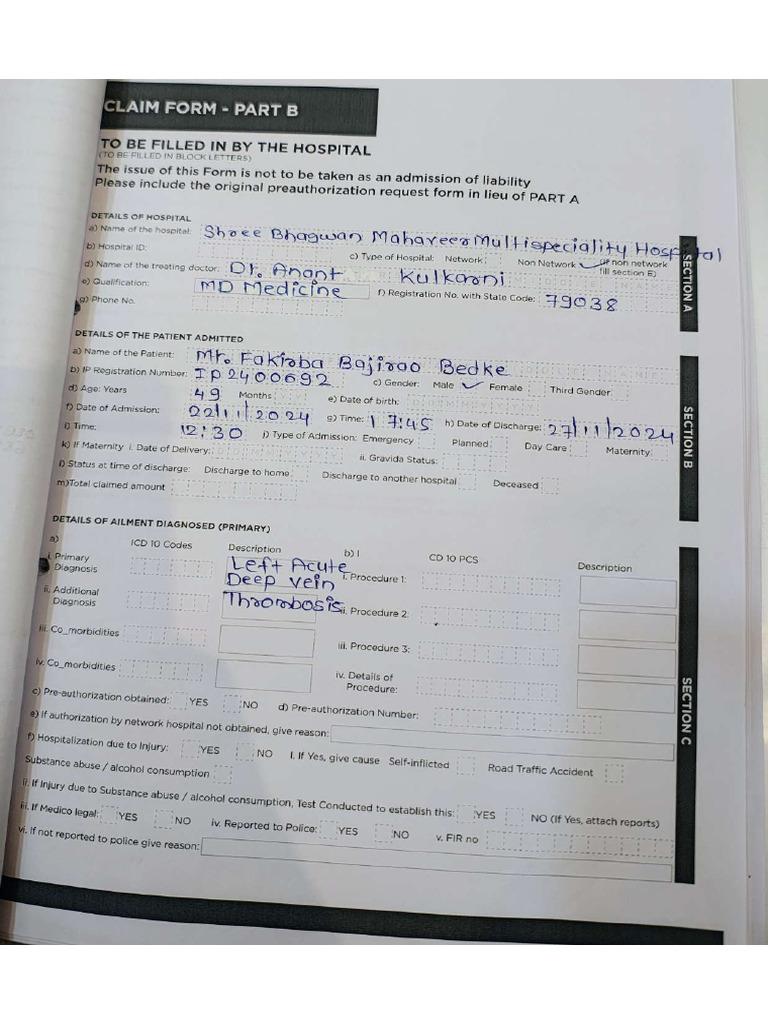 CLAIM FORM - PART B
TO BE FILLED IN BY THE HOSPITAL
(TO BE FILLED IN BLOCK LETTERS)
The issue of this Form is not to be taken as an admission of liability
Please include the original preauthorization request form in lieu of PART A
DETAILS OF HOSPITAL
a) Name of the hospital: Shree Bhagwan Mahaveer Multispeciality Hospital
b) Hospital ID: c) Type of Hospital: Network: Non Network ✓ (IF non network fill section E)
d) Name of the treating doctor: Dr. Anant Kulkarni
e) Qualification: MD Medicine f) Registration No. with State Code: 79038
g) Phone No.
SECTION A
DETAILS OF THE PATIENT ADMITTED
a) Name of the Patient: Mr. Fakirba Bajirao Bedke
b) IP Registration Number: IP2400692 c) Gender: Male ✓ Female Third Gender
d) Age: Years 49 Months e) Date of birth:
f) Date of Admission: 22/11/2024 g) Time: 17:45 h) Date of Discharge: 27/11/2024
i) Time: 12:30 j) Type of Admission: Emergency Planned Day Care Maternity
k) If Maternity i. Date of Delivery: ii. Gravida Status:
l) Status at time of discharge: Discharge to home Discharge to another hospital Deceased
m)Total claimed amount
SECTION B
DETAILS OF AILMENT DIAGNOSED (PRIMARY)
a) ICD 10 Codes Description b) I CD 10 PCS Description
i. Primary Diagnosis Left Acute Deep vein i. Procedure 1:
ii. Additional Diagnosis Thrombosis ii. Procedure 2:
iii. Co_morbidities iii. Procedure 3:
iv. Co_morbidities iv. Details of Procedure:
c) Pre-authorization obtained: YES NO d) Pre-authorization Number:
e) If authorization by network hospital not obtained, give reason:
f) Hospitalization due to Injury: YES NO I. If Yes, give cause Self-inflicted Road Traffic Accident
Substance abuse / alcohol consumption
ii. If Injury due to Substance abuse / alcohol consumption, Test Conducted to establish this: YES NO (If Yes, attach reports)
iii. If Medico legal: YES NO iv. Reported to Police: YES NO v. FIR no
vi. If not reported to police give reason:
SECTION C